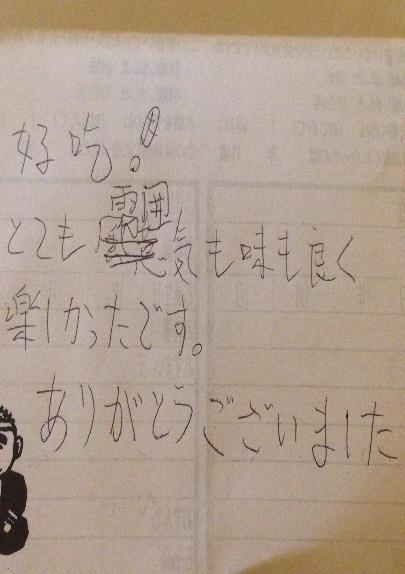 好吃。!
とても雰囲気も味も良く
楽しかったです。
ありがとうございました